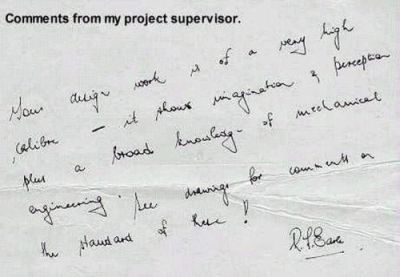 Comments from my project supervisor.
Your design work is of a very high
calibre - it shows imagination & perception
plus a broad knowledge of mechanical
engineering. See drawings for comments on
the standard of these!